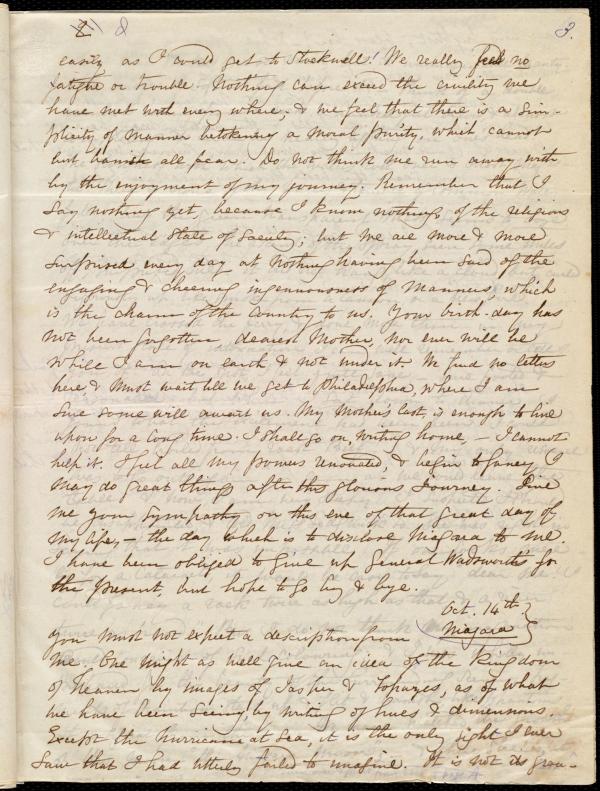 2 3.
easily as I could get to Stockwell! We really feel no
fatigue or trouble. Nothing can exceed the civility we
have met with every where; & we feel that there is a sim-
plicity of manner betokening a moral purity, which cannot
but banish all fear. Do not think me run away with
by the enjoyment of my journey. Remember that I
say nothing yet, because I know nothing, of the religious
& intellectual state of Society; but we are more & more
surprised every day at nothing having been said of the
engaging & cheering ingenuousness of manners, which
is the charm of the country to us. Your birth-day has
not been forgotten, dearest Mother, nor ever will be
while I am on earth & not under it. We find no letters
here, & must wait till we get to Philadelphia, where I am
sure some will await us. My Mother's last, is enough to live
upon for a long time. I shall go on, writing home, – I cannot
help it. I feel all my powers renovated, & begin to fancy I
may do great things after this glorious journey. Give
me your sympathy on this eve of that great day of
my life, – the day which is to disclose Niagara to me.
I have been obliged to give up General Wadsworth's for
the present, but hope to go by & bye.
Oct. 14th.
Niagara
You must not expect a description from
me. One might as well give an idea of the Kingdom
of Heaven by images of Jasper & Topazes, as of what
we have been seeing, by writing of hues & dimensions.
Except the hurricane at Sea, it is the only sight I ever
saw that I had utterly failed to imagine. It is not its gran-